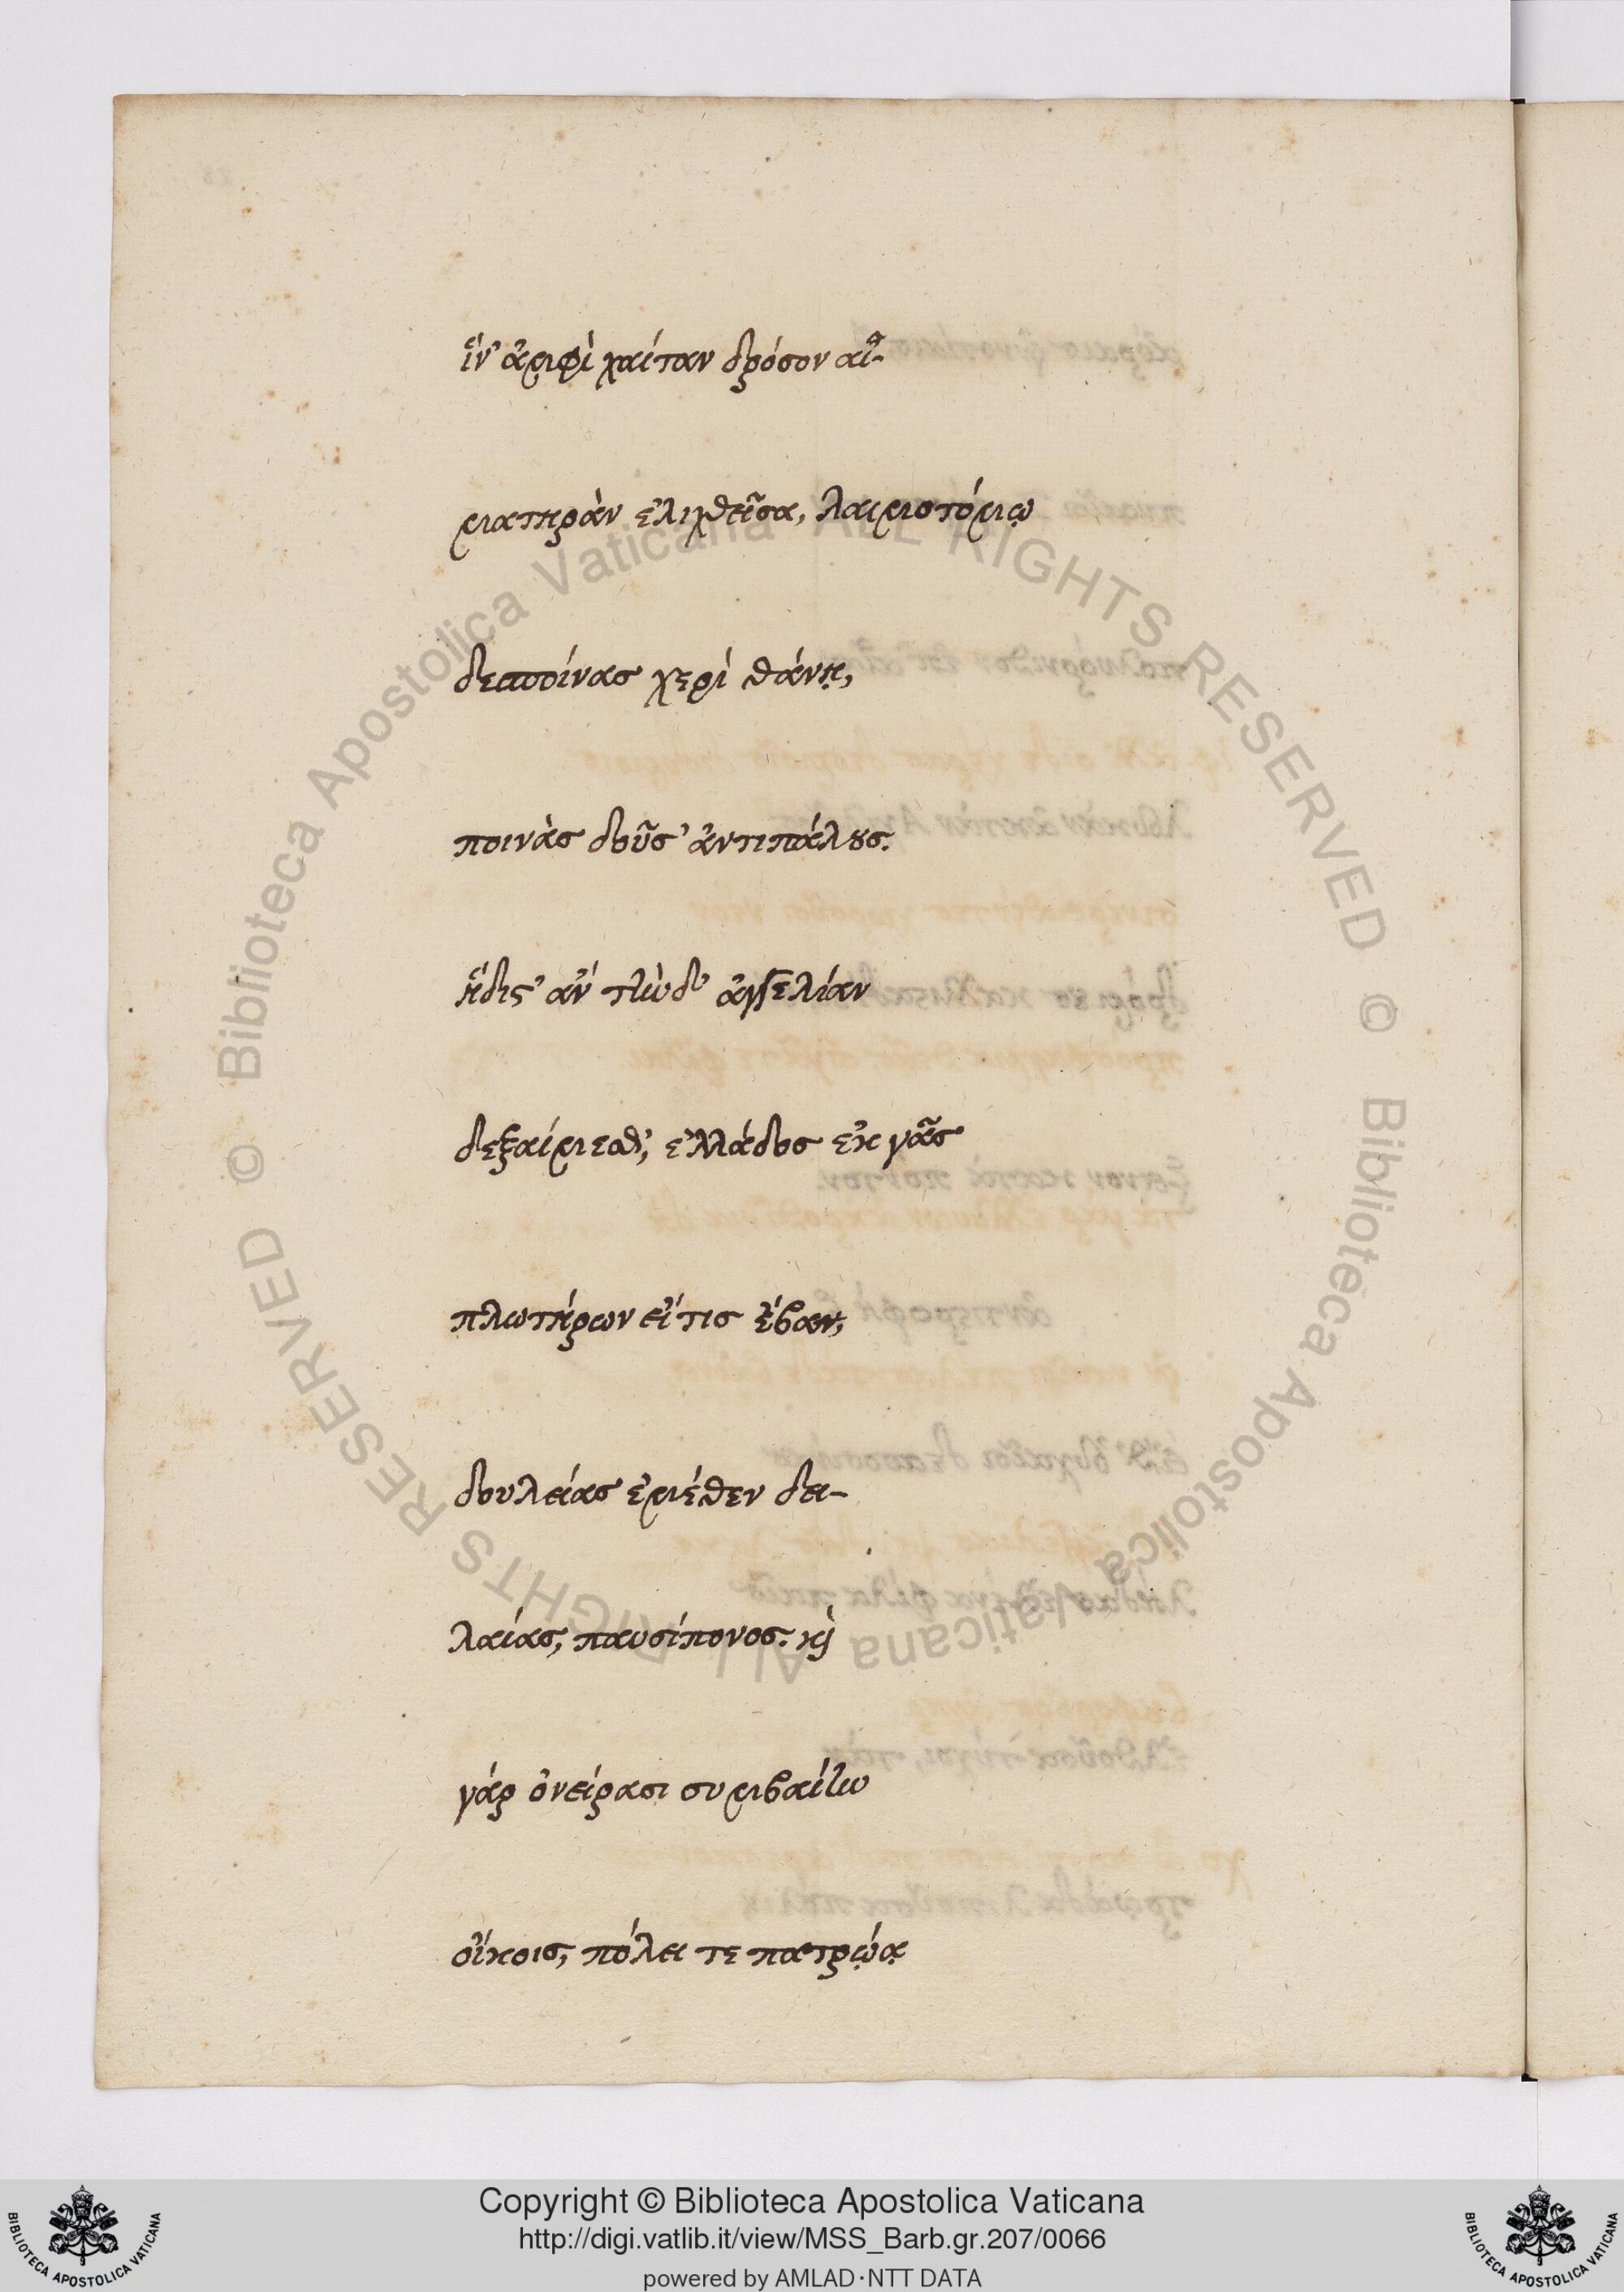 ἵν' ἀμφὶ χαίταν δρόσον αἱ-
ματηρὰν ἑλιχθεῖσα, λαιμοτόμῳ
δεσποίνας χερὶ θάνῃ,
ποινὰς δοῦσ' ἀντιπάλους.
ἥδιστ' ἂν τὴνδ' ἀγγελίαν
δεξαίμεσθ', ἑλλάδος ἐκ γᾶς
πλωτήρων εἴ τις ἔβαν,
δουλείας ἐμέθεν δει-
λαίας, παυσίπονος. καὶ
γάρ ὀνείρασι συμβαίην
οἴκοις, πόλει τε πατρῴᾳ
© Biblioteca Apostolica Vaticana ALL RIGHTS RESERVED © Biblioteca Apostolica Vaticana ALL RIGHTS RESERVED
Copyright © Biblioteca Apostolica Vaticana
http://digi.vatlib.it/view/MSS_Barb.gr.207/0066
powered by AMLAD·NTT DATA
BIBLIOTECA APOSTOLICA VATICANA
BIBLIOTECA APOSTOLICA VATICANA